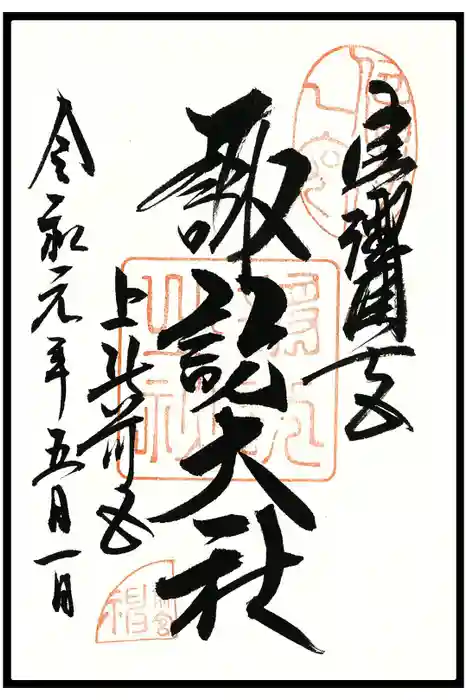 信濃國一之宮
諏訪大社
上社前宮
令和元年五月一日